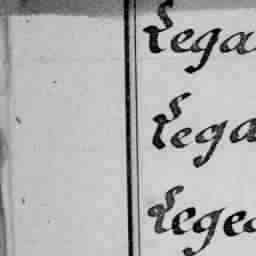 Lega
Lega
Legea